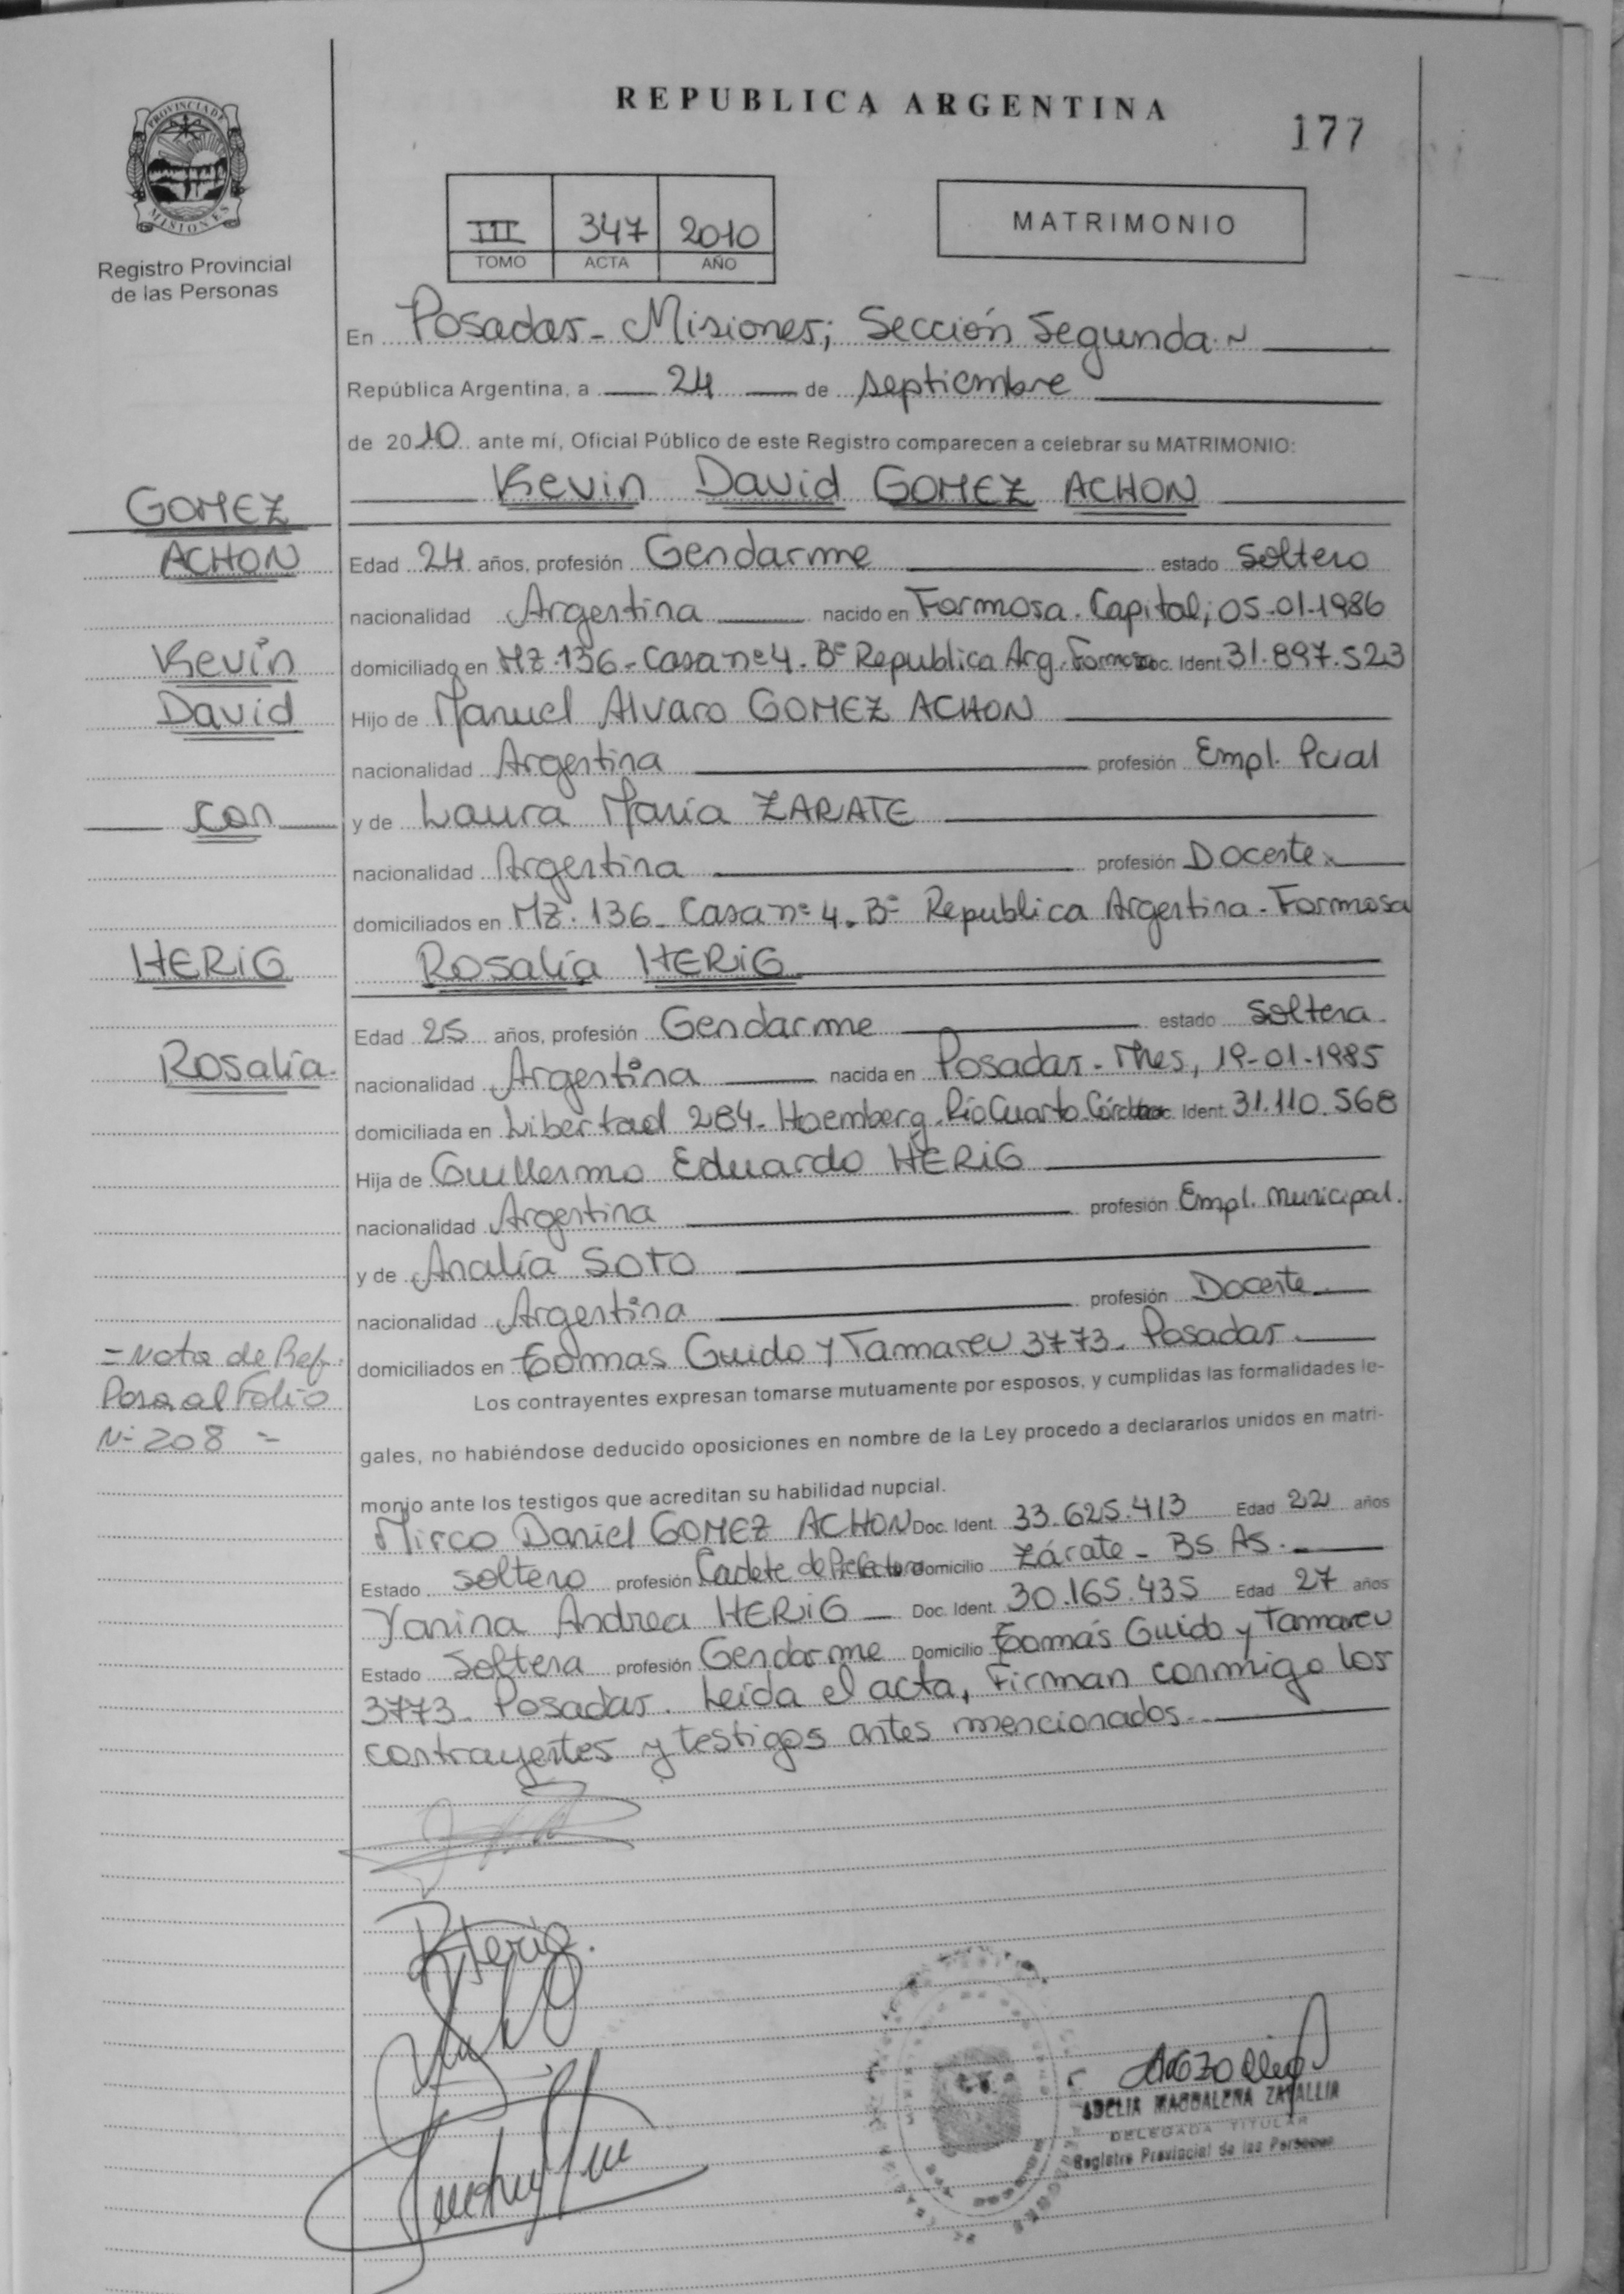 REPUBLICA ARGENTINA
177
PROVINCIA DE
MISIONES
Registro Provincial
de las Personas
III 347 2010
TOMO ACTA AÑO
MATRIMONIO
En Posadas - Misiones; Sección Segunda
República Argentina, a 24 de septiembre
de 2010 ante mí, Oficial Público de este Registro comparecen a celebrar su MATRIMONIO:
Kevin David GOMEZ ACHON
GOMEZ
ACHON
Edad 24 años, profesión Gendarme estado Soltero
nacionalidad Argentina nacido en Formosa. Capital; 05-01-1986
Kevin
domiciliado en MZ.136 - Casa nº 4. Bº Republica Arg. Formosa Doc. Ident. 31.897.523
David
Hijo de Manuel Alvaro GOMEZ ACHON
nacionalidad Argentina profesión Empl. Pcial
con
y de Laura María ZARATE
nacionalidad Argentina profesión Docente
domiciliados en MZ. 136 - Casa nº 4. Bº Republica Argentina - Formosa
HERIG
Rosalía HERIG
Edad 25 años, profesión Gendarme estado Soltera.
Rosalía.
nacionalidad Argentina nacida en Posadas - Mnes, 19-01-1985
domiciliada en Libertad 284 - Hoemberg. Río Cuarto Córdoba Doc. Ident. 31.110.568
Hija de Guillermo Eduardo HERIG
nacionalidad Argentina profesión Empl. Municipal.
y de Analía SOTO
nacionalidad Argentina profesión Docente
domiciliados en Tomas Guido y Tamareu 3773 - Posadas.
= Nota de Ref.
Pasa al Folio
Nº 208 =
Los contrayentes expresan tomarse mutuamente por esposos, y cumplidas las formalidades le-
gales, no habiéndose deducido oposiciones en nombre de la Ley procedo a declararlos unidos en matri-
monio ante los testigos que acreditan su habilidad nupcial.
Mirco Daniel GOMEZ ACHON Doc. Ident. 33.625.413 Edad 22 años
Estado Soltero profesión Cadete de Prefectura Domicilio Zárate - BS AS.
Yanina Andrea HERIG Doc. Ident. 30.165.435 Edad 27 años
Estado Soltera profesión Gendarme Domicilio Tomás Guido y Tamareu
3773 - Posadas. Leída el acta, Firman conmigo los
contrayentes y testigos antes mencionados.
RHerig.
ADELIA MAGDALENA ZAYALLIA
DELEGADA TITULAR
Registro Provincial de las Personas